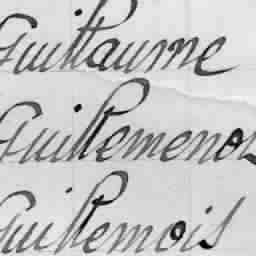 Guillaume
Guillemenos
Guillemois